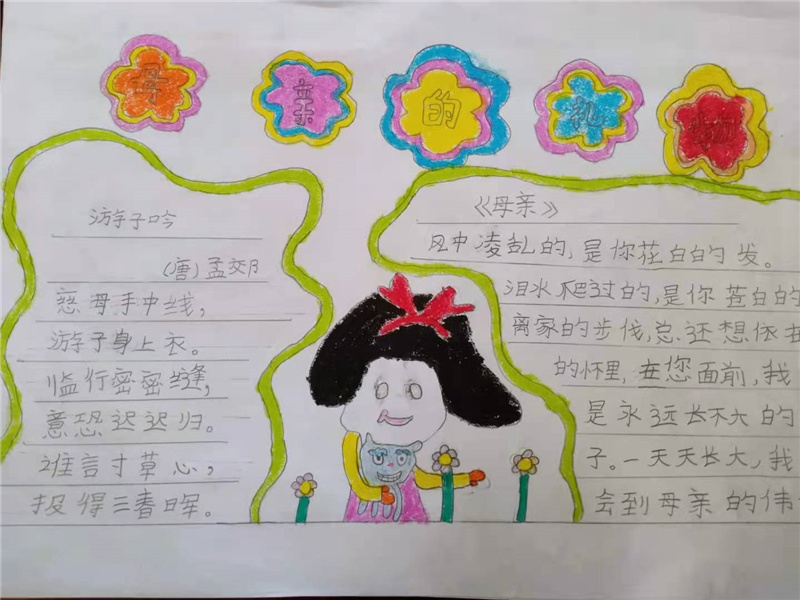 母亲的礼物
游子吟
(唐)孟郊
慈母手中线,
游子身上衣。
临行密密缝,
意恐迟迟归。
谁言寸草心,
报得三春晖。
《母亲》
风中凌乱的,是你花白的发。
泪水爬过的,是你苍白的
离家的步伐,总还想依在
的怀里,在您面前,我
是永远长不大的
子。一天天长大,我
会到母亲的伟